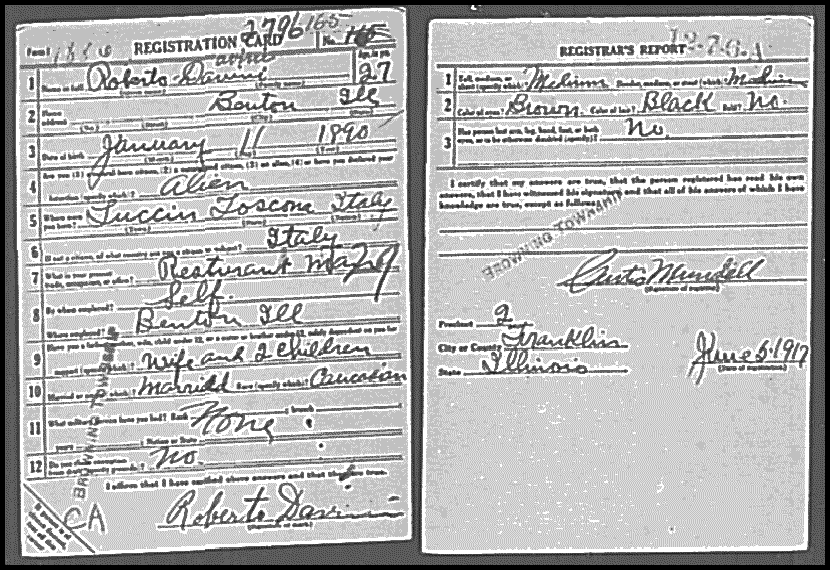 2796 165
Form 1 1886 REGISTRATION CARD No. 165
1 Name in full Roberto Davini Age, in yrs. 27
2 Home address Benton Ill
(No.) (Street) (City) (State)
3 Date of birth January 11 1890
(Month) (Day) (Year)
4 Are you (1) a natural-born citizen, (2) a naturalized citizen, (3) an alien, (4) or have you declared your
intention (specify which)? Alien
5 Where were you born? Luccin Toscom Italy
(Town) (State) (Nation)
6 If not a citizen, of what country are you a citizen or subject? Italy
7 What is your present trade, occupation, or office? Resturant
8 By whom employed? Self.
Where employed? Benton Ill
9 Have you a father, mother, wife, child under 12, or a sister or brother under 12, solely dependent on you for
support (specify which)? Wife and 2 children
10 Married or single (which)? Married Race (specify which)? Caucasion
11 What military service have you had? Rank None ; branch
years ; Nation or State
12 Do you claim exemption from draft (specify grounds)? No.
I affirm that I have verified above answers and that they are true.
Roberto Davini
(Signature or mark)
BROWNING TOWNSHIP
CA
REGISTRAR'S REPORT 12-7-6-A
1 Tall, medium, or short (specify which)? Medium Slender, medium, or stout (which)? Medium
2 Color of eyes? Brown Color of hair? Black Bald? No.
3 Has person lost arm, leg, hand, foot, or both
eyes, or is he otherwise disabled (specify)? No.
I certify that my answers are true, that the person registered has read his own
answers, that I have witnessed his signature, and that all of his answers of which I have
knowledge are true, except as follows:
BROWNING TOWNSHIP
Curtis Mundell
(Signature of registrar)
Precinct 2
City or County Franklin
State Illinois
June 5-1917
(Date of registration)